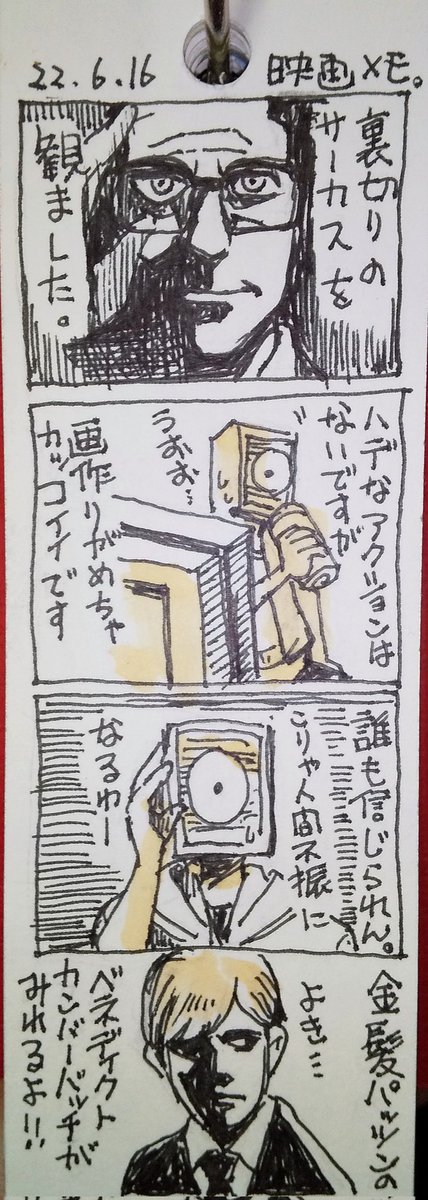 22.6.16
映画メモ。
裏切りの
サーカスを
観ました。
ハデなアクションは
ないですが
うおお…
画作りがめちゃ
カッコイイです
誰も信じられん。
こりゃ人間不振に
なるわー
金髪パッツンの
よき…
ベネディクト
カンバーバッチが
みれるよ!!